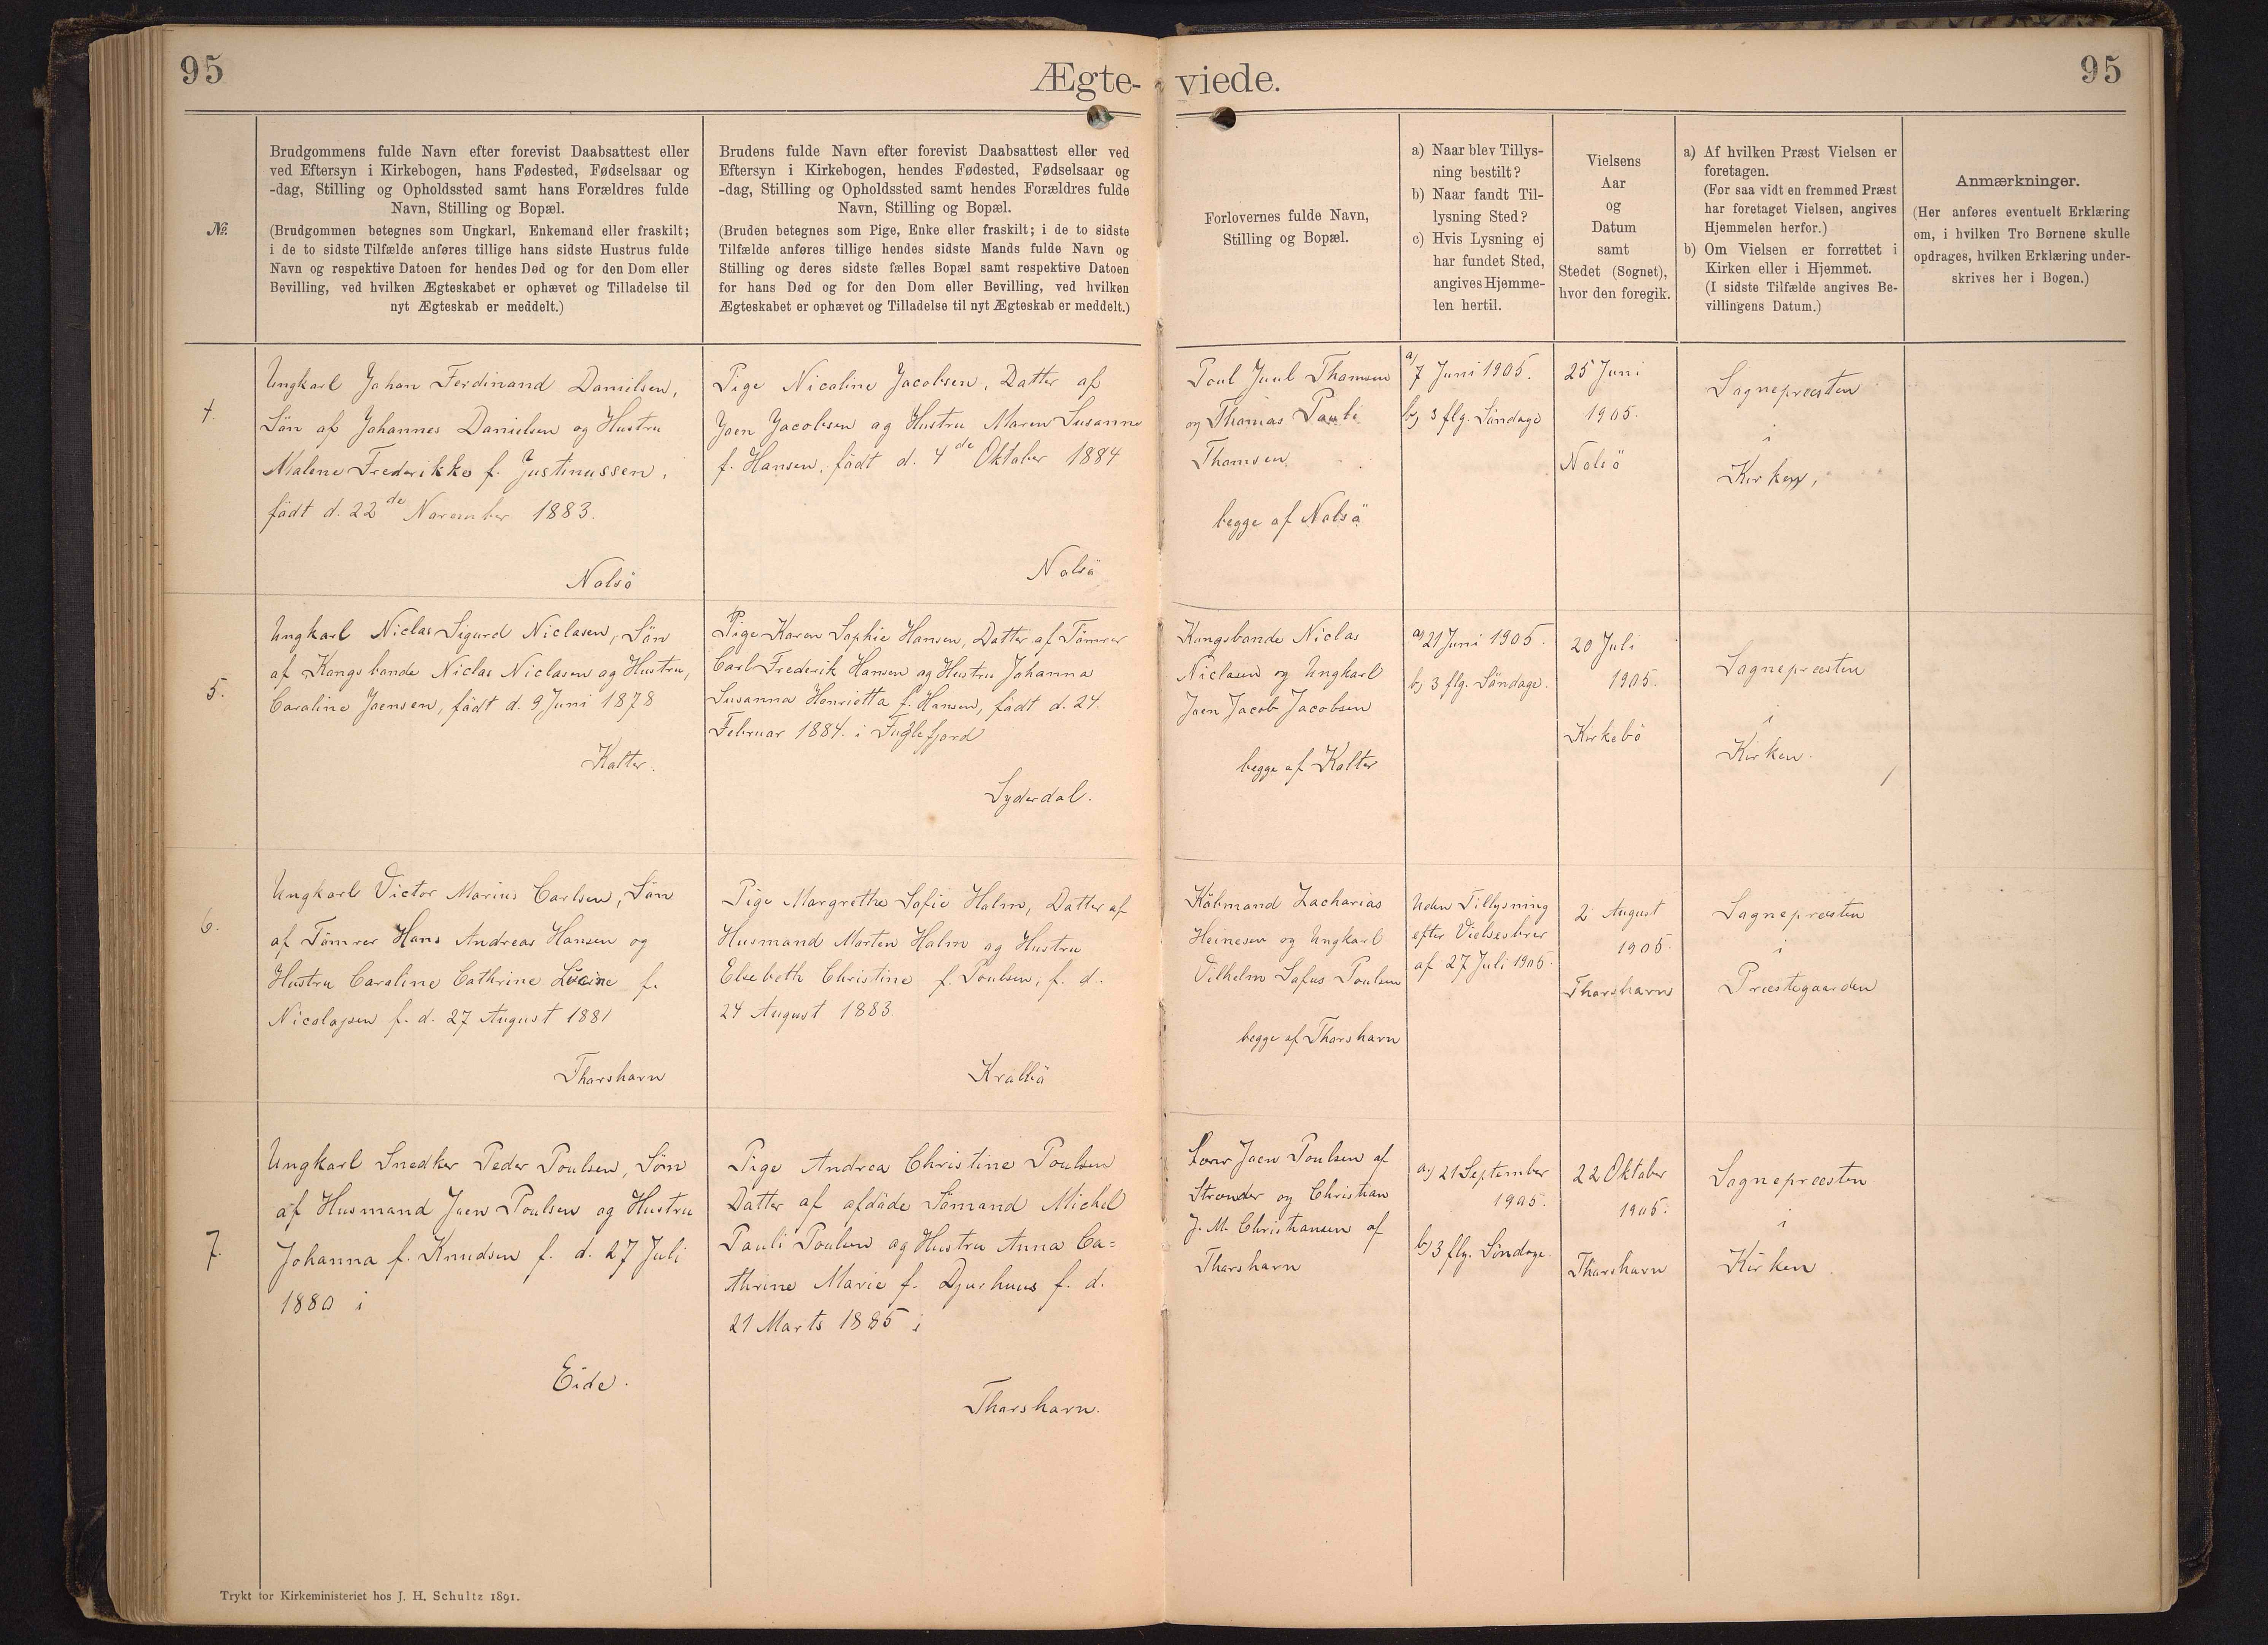 95
Ægte-
viede.
95
№.
Brudgommens fulde Navn efter forevist Daabsattest eller
ved Eftersyn i Kirkebogen, hans Fødested, Fødselsaar og
-dag, Stilling og Opholdssted samt hans Forældres fulde
Navn, Stilling og Bopæl.
(Brudgommen betegnes som Ungkarl, Enkemand eller fraskilt;
i de to sidste Tilfælde anføres tillige hans sidste Hustrus fulde
Navn og respektive Datoen for hendes Død og for den Dom eller
Bevilling, ved hvilken Ægteskabet er ophævet og Tilladelse til
nyt Ægteskab er meddelt.)
Brudens fulde Navn efter forevist Daabsattest eller ved
Eftersyn i Kirkebogen, hendes Fødested, Fødselsaar og
-dag, Stilling og Opholdssted samt hendes Forældres fulde
Navn, Stilling og Bopæl.
(Bruden betegnes som Pige, Enke eller fraskilt; i de to sidste
Tilfælde anføres tillige hendes sidste Mands fulde Navn og
Stilling og deres sidste fælles Bopæl samt respektive Datoen
for hans Død og for den Dom eller Bevilling, ved hvilken
Ægteskabet er ophævet og Tilladelse til nyt Ægteskab er meddelt.)
Forlovernes fulde Navn,
Stilling og Bopæl.
a) Naar blev Tillys-
ning bestilt?
b) Naar fandt Til-
lysning Sted?
c) Hvis Lysning ej
har fundet Sted,
angives Hjemme-
len hertil.
Vielsens
Aar
og
Datum
samt
Stedet (Sognet),
hvor den foregik.
a) Af hvilken Præst Vielsen er
foretagen.
(For saa vidt en fremmed Præst
har foretaget Vielsen, angives
Hjemmelen herfor.)
b) Om Vielsen er forrettet i
Kirken eller i Hjemmet.
(I sidste Tilfælde angives Be-
villingens Datum.)
Anmærkninger.
(Her anføres eventuelt Erklæring
om, i hvilken Tro Børnene skulle
opdrages, hvilken Erklæring under-
skrives her i Bogen.)
4
Ungkarl Johan Ferdinand Danielsen,
Søn af Johannes Danielsen og Hustru
Malene Frederikke f. Justinussen,
født d. 22de November 1883.
Nolsö
Pige Nicoline Jacobsen, Datter af
Joen Jacobsen og Hustru Maren Susanne
f. Hansen, født d. 4de Oktober 1884
Nolsö
Poul Juul Thomsen
og Thomas Pauli
Thomsen
begge af Nolsö
a) 7 Juni 1905.
b) 3 flg. Söndage
25 Juni
1905.
Nolsö
Sognepræsten
i
Kirken,
5.
Ungkarl Niclas Sigurd Niclasen, Sön
af Kongsbonde Niclas Niclasen og Hustru,
Caroline Joensen, født d. 9 Juni 1878
Kolter.
Pige Karen Sophie Hansen, Datter af Tömrer
Carl Frederik Hansen og Hustru Johanna
Susanna Henrietta f. Hansen, født d. 24.
Februar 1884. i Fuglefjord
Syderdal.
Kongsbonde Niclas
Niclasen og Ungkarl
Joen Jacob Jacobsen
begge af Kolter
a) 21 Juni 1905.
b) 3 flg. Söndage.
20 Juli
1905.
Kirkebö
Sognepræsten
i
Kirken.
6.
Ungkarl Victor Marius Carlsen, Sön
af Tömrer Hans Andreas Hansen og
Hustru Caroline Cathrine f.
Nicolajsen f. d. 27 August 1881
Thorshavn
Pige Margrethe Sofie Holm, Datter af
Husmand Morten Holm og Hustru
Elsebeth Christine f. Poulsen, f. d.
24 August 1883.
Kralbö
Köbmand Zacharias
Heinesen og Ungkarl
Vilhelm Sofus Poulsen
begge af Thorshavn
Uden Tillysning
efter Vielsesbrev
af 27 Juli 1905.
2. August
1905.
Thorshavn
Sognepræsten
i
Præstegaarden
7.
Ungkarl Snedker Peder Poulsen, Søn
af Husmand Joen Poulsen og Hustru
Johanna f. Knudsen f. d. 27 Juli
1880 i
Eide.
Pige Andrea Christine Poulsen
Datter af afdöde Sömand Michel
Pauli Poulsen og Hustru Anna Ca=
thrine Marie f. Djurhuus f. d.
21 Marts 1885 i
Thorshavn.
Joen Poulsen af
Strender og Christian
J. M. Christiansen af
Thorshavn
a) 21 September
1905.
b) 3 flg. Söndage.
22 Oktober
1905.
Thorshavn
Sognepræsten
i
Kirken.
Trykt for Kirkeministeriet hos J. H. Schultz 1891.